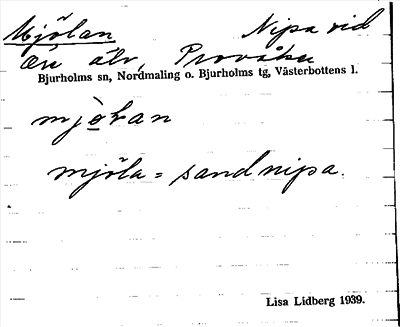 Mjölan Nipa vid
Öre älv, Provåker
Bjurholms sn, Nordmaling o. Bjurholms tg, Västerbottens l.
mjö̀lan
mjöla = sandnipa.
Lisa Lidberg 1939.